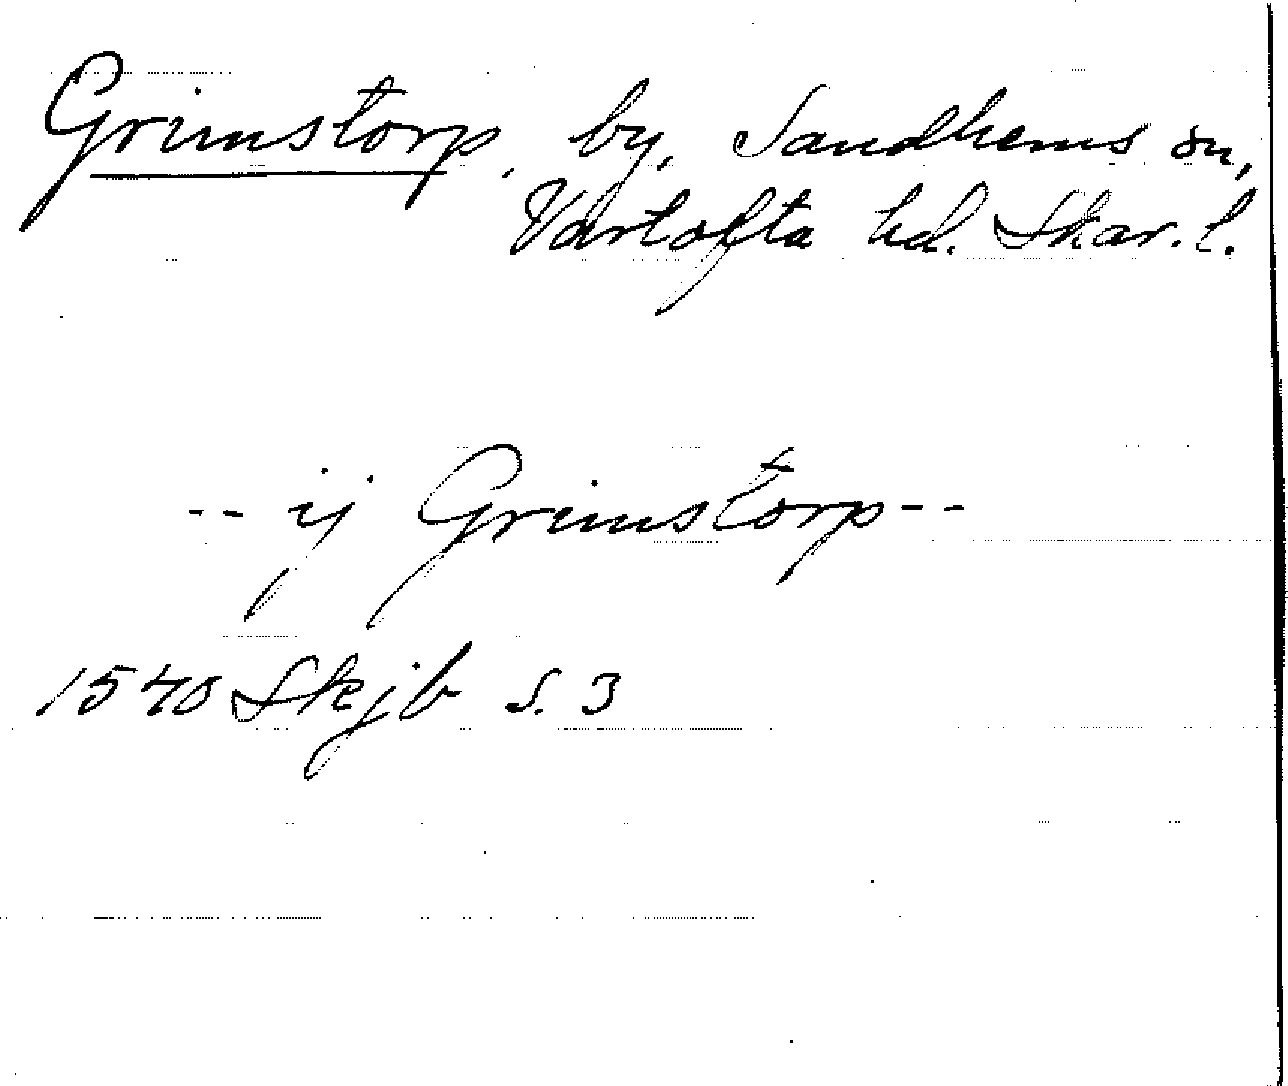 Grimstorp, by, Sandhems sn,
Vartofta hd. Skar. l.
-- ij Grimstorp --
1540 Skjb s. 3